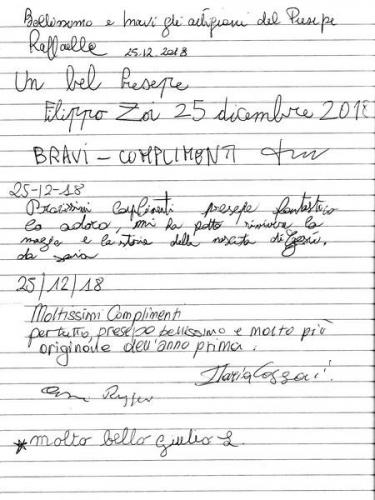 Bellissimo e bravi gli artigiani del Presepe
Raffaelle 25.12.2018
Un bel Presepe
Filippo Zoi 25 dicembre 2018
BRAVI - COMPLIMENTI
25-12-18
Bravissimi Complimenti presepe fantastico
lo adoro, mi ha fatto rivivere la
magia e la storia della nascita di Gesù,
da
25/12/18
Moltissimi Complimenti
per tutto, presepe bellissimo e molto più
originale dell'anno prima.
Ilaria
* molto bello Giulio L.